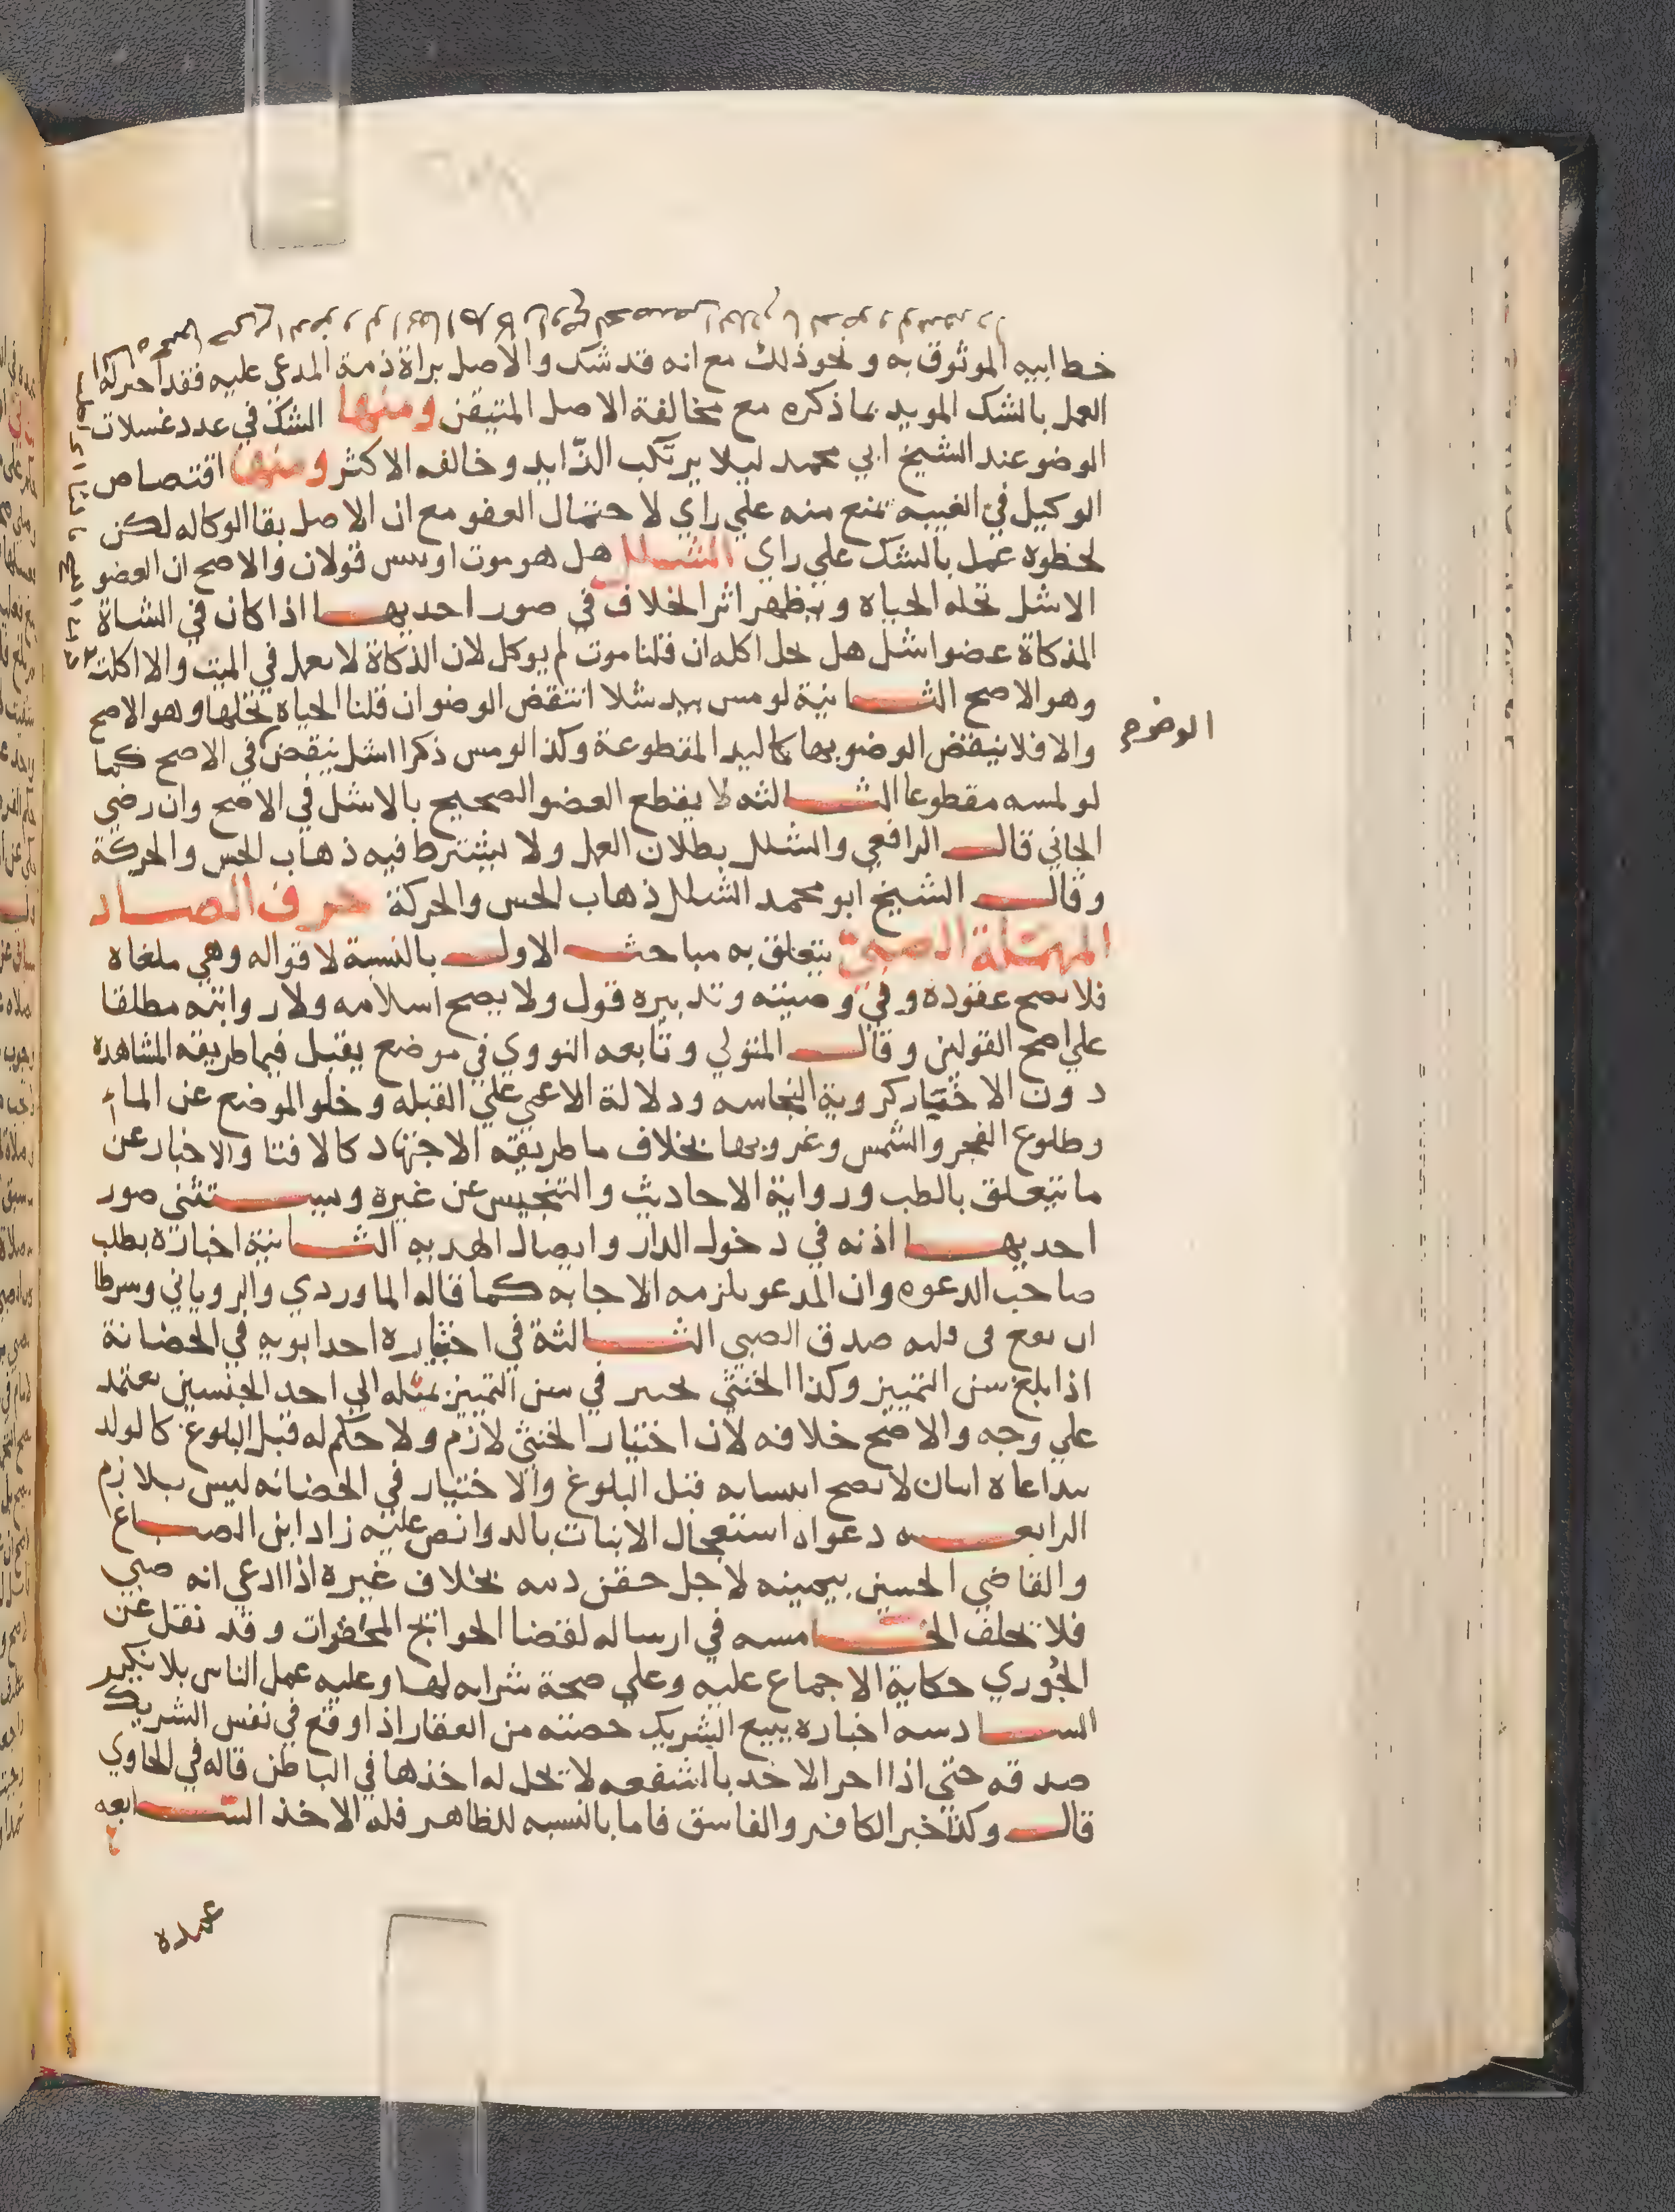 خط ابيه الموثوق به ونحو ذلك مع انه قد شك والاصل براة ذمة المدعي عليه فقد
العمل بالشك المويد بما ذكره مع مخالفة الاصل المتيقن ومنها الشك في عدد غسلات
الوضو عند الشيخ ابي محمد ليلا يرتكب الزايد وخالفه الاكثر ومنها اقتصاص
الوكيل في الغيبه نمنع منه علي راي لاحتمال العفو مع ان الاصل بقا الوكاله لكن
لخطره عمل بالشك علي راي الشلل هل هو موت او يبس قولان والاصح ان العضو
الاشل تحله الحياة ويظهر اثر الخلاف في صور احديها اذا كان في الشاة
المذكاة عضو اشل هل يحل اكله ان قلنا موت لم يوكل لان الذكاة لا تعمل في الميت والا اكلت
وهو الاصح الثانية لو مس بيد شلا انتقض الوضو ان قلنا الحياة تحلها وهو الاصح
والا فلا ينقض الوضو بها كاليد المقطوعة وكذا لو مس ذكرا اشل ينقض في الاصح كما
لو لمسه مقطوعا الثالثه لا يقطع العضو الصحيح بالاشل في الاصح وان رضي
الجاني قال الرافعي والشلل بطلان العمل ولا يشترط فيه ذهاب الحس والحركة
وقال الشيخ ابو محمد الشلل ذهاب الحس والحركة حرف الصاد
المهملة الصبي يتعلق به مباحث الاول بالنسبة لاقواله وهي ملغاه
فلا تصح عقوده وفي وصيته وتدبيره قول ولا يصح اسلامه ولا روايته مطلقا
علي اصح القولين وقال المتولي وتابعه النووي في موضع يقبل فيما طريقه المشاهده
دون الاختيار كروية النجاسه ودلالة الاعمي علي القبله وخلو الموضع عن الماء
وطلوع الفجر والشمس وغروبها بخلاف ما طريقه الاجتهاد كالافتا والاخبار عن
ما يتعلق بالطب ورواية الاحاديث والتنجيس عن غيره ويستثني صور
احديها اذنه في دخول الدار وايصال الهديه الثانية اخباره بطلب
صاحب الدعوه وان المدعو يلزمه الاجابه كما قاله الماوردي والروياني وشرطا
ان يقع في قلبه صدق الصبي الثالثة في اختياره احد ابويه في الحضانة
اذا بلغ سن التمييز وكذا الخنثي يخبر في سن التمييز بميله الي احد الجنسين يعتمد
علي وجه والاصح خلافه لان اختيار الخنثي لازم ولا حكم له قبل البلوغ كالولد
يتداعاه اثنان لا يصح انتسابه قبل البلوغ والاختيار في الحضانه ليس بلازم
الرابعه دعواه استعجال الانبات بالدوا نص عليه زاد ابن الصباغ
والقاضي الحسين بيمينه لاجل حقن دمه بخلاف غيره اذا ادعي انه صبي
فلا يحلف الخامسه في ارساله لقضا الحوائج المحقرات وقد نقل عن
الجوري حكاية الاجماع عليه وعلي صحة شرايه لها وعليه عمل الناس بلا نكير
السادسه اخباره ببيع الشريك حصته من العقار اذا وقع في نفس الشريك
صدقه حتي اذا اخر الاخذ بالشفعه لا تحل له اخذها في الباطن قاله في الحاوي
قال وكذا خبر الكافر والفاسق فاما بالنسبه للظاهر فله الاخذ السابعه
الوضو
عمده